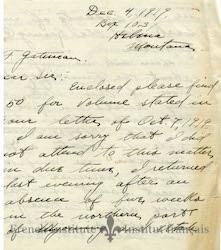 Dec. 4, 1919
Box 103
Helena
Montana
F. Gateman
ear Sir:
enclosed please find
50 for volume stated in
our letter of Oct 7, 1919
I am sorry that I did
not attend to this matter
in due time, I returned
last evening after an
absence of five weeks
in the northern part
French Institute
Institut français